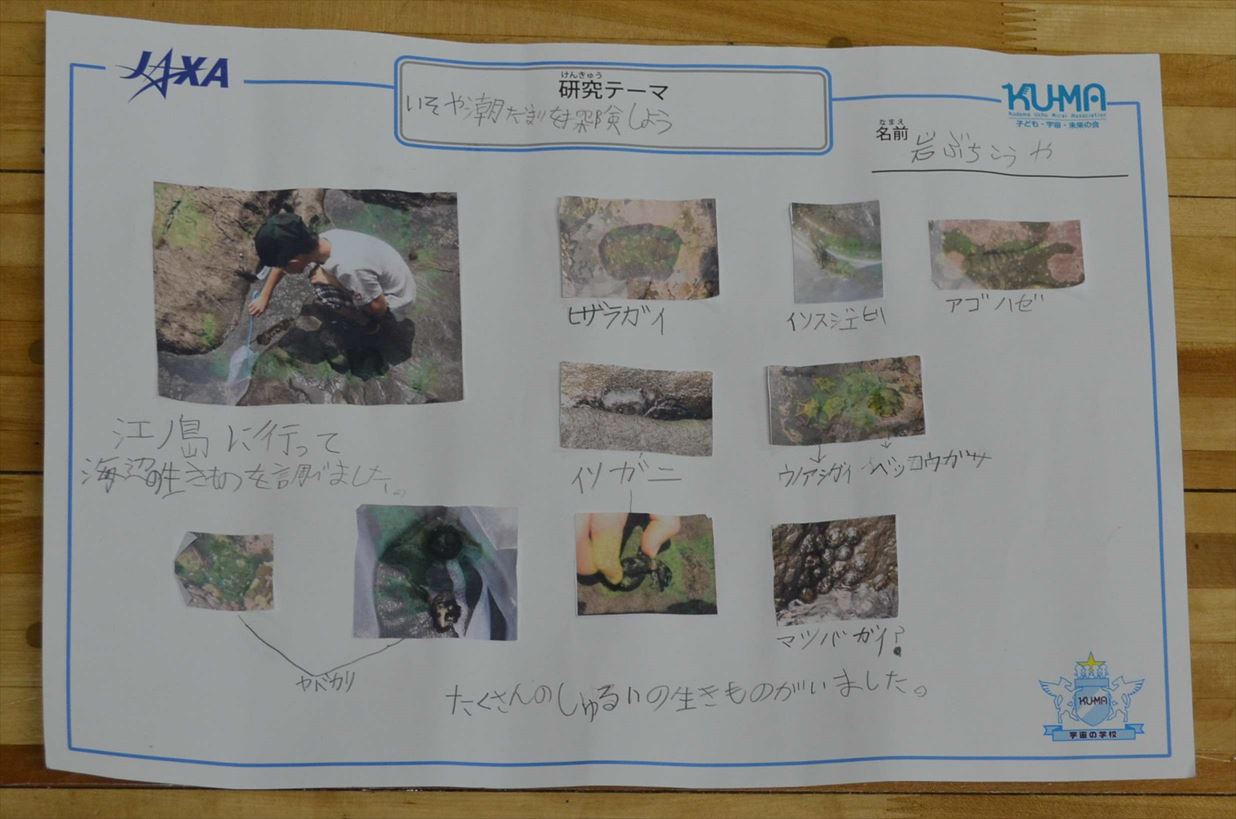 JAXA
けんきゅう
研究テーマ
いそや潮だまりを探険しよう
KU-MA
Kodomo Uchu Mirai Association
子ども・宇宙・未来の会
なまえ
名前
岩ぶちこうや
ヒザラガイ
イソスジエビ
アゴハゼ
江ノ島に行って
海辺の生きものを調べました。
イソガニ
ウノアシガイ
ベッコウガサ
ヤドカリ
マツバガイ?
たくさんのしゅるいの生きものがいました。
KU-MA
宇宙の学校